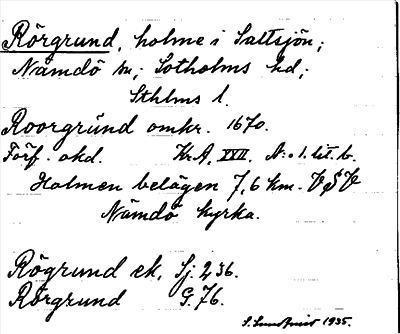 Rörgrund, holme i Saltsjön;
Nämdö sn; Sotholms hd;
Sthlms l.
Roorgrund omkr. 1670.
Förf. okd. Kr.A. XXII. N:o 1. lit. b.
Holmen belägen 7,6 km. V§V
Nämdö kyrka.
Rögrund ek, Sj. 236.
Rörgrund G. 76.
S. 1935.